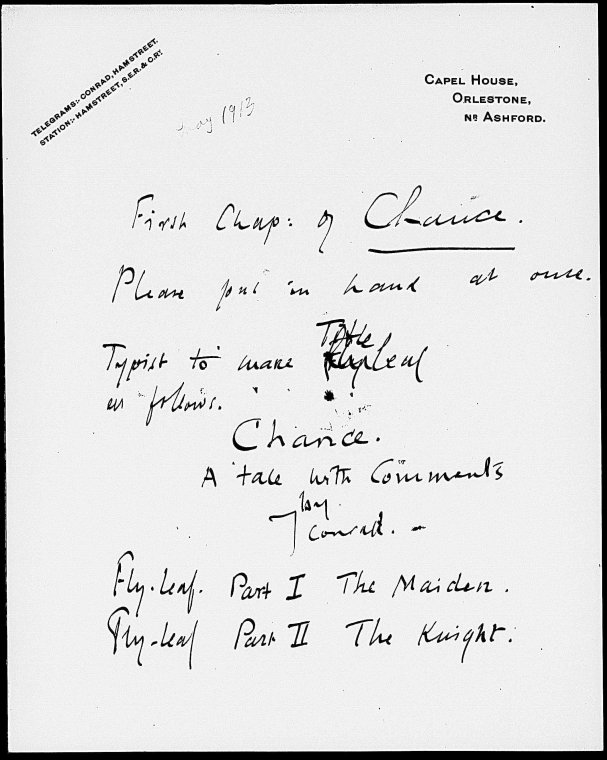 TELEGRAMS:- CONRAD, HAMSTREET.
STATION:- HAMSTREET, S.E.R. & C.RY.
CAPEL HOUSE,
ORLESTONE,
NR ASHFORD.
May 1913
First Chap: of Chance.
Please put in hand at once.
Typist to make Title leaf
as follows.
Chance.
A tale with Comments
by
J Conrad. -
Fly-leaf. Part I The Maiden.
Fly-leaf Part II The Knight.